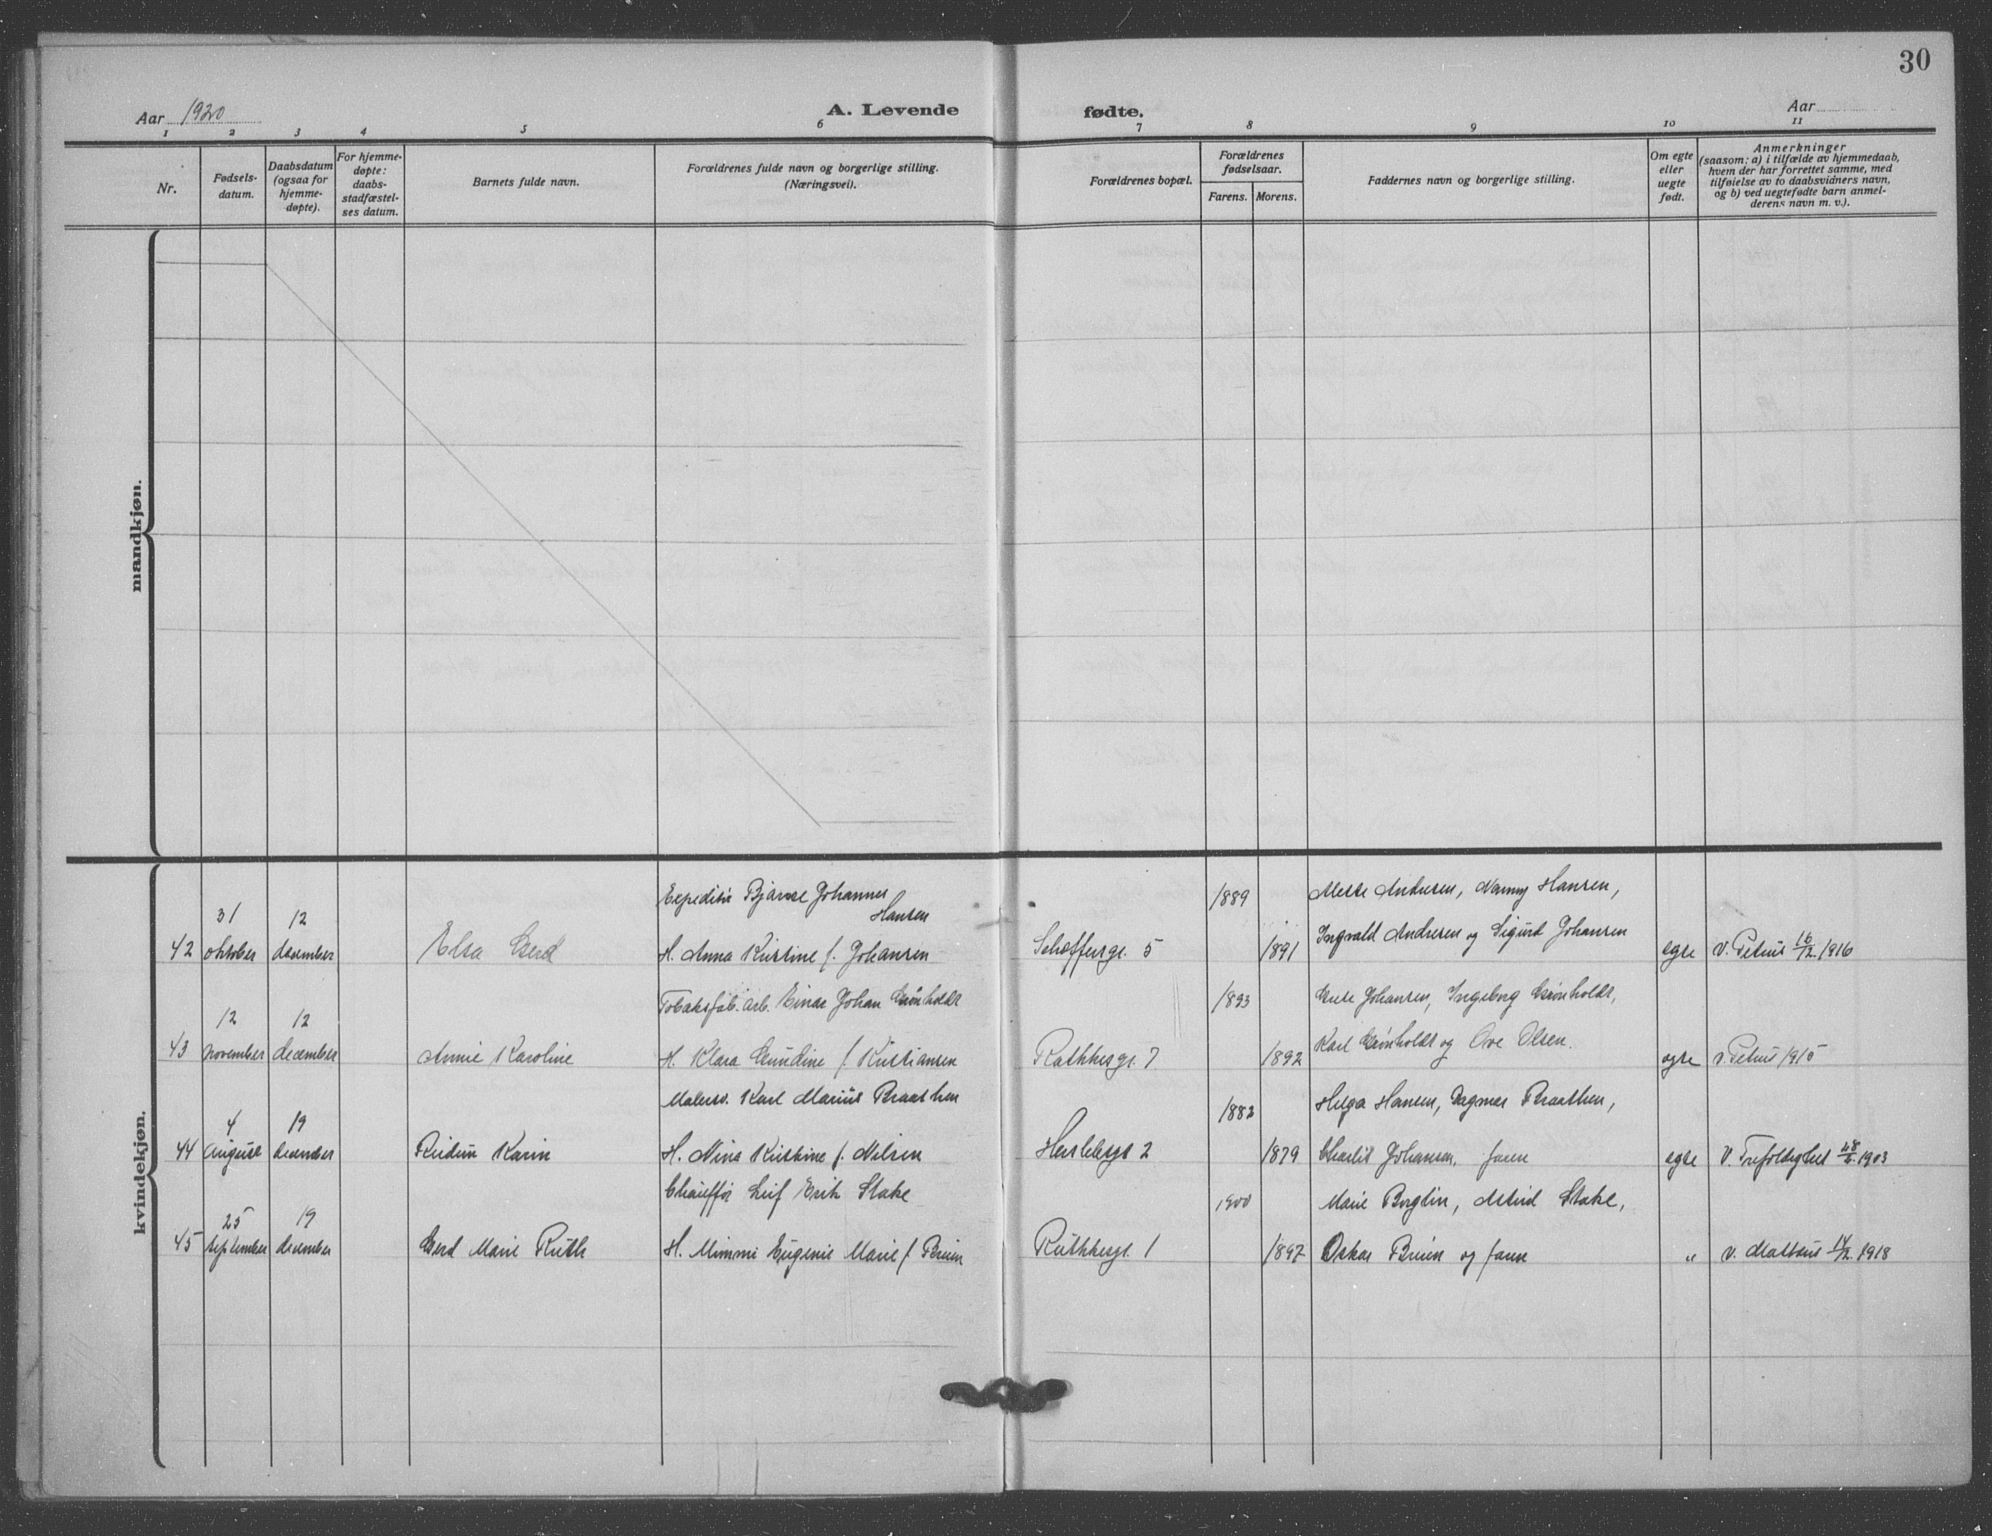 30
Aar 1920
A. Levende fødte.
Aar
1 2 3 4 5 6 7 8 9 10 11
Nr.
Fødsels-
datum.
Daabsdatum
(ogsaa for
hjemme-
døpte).
For hjemme-
døpte:
daabs-
stadfæstel-
ses datum.
Barnets fulde navn.
Forældrenes fulde navn og borgerlige stilling.
(Næringsvei).
Forældrenes bopæl.
Forældrenes
fødselsaar.
Farens. Morens.
Faddernes navn og borgerlige stilling.
Om egte
eller
uegte
født.
Anmerkninger
(saasom: a) i tilfælde av hjemmedaab,
hvem der har forrettet samme, med
tilføielse av to daabsvidners navn,
og b) ved uegtefødte barn anmel-
derens navn m. v.).
mandkjøn.
kvindekjøn.
Bjarne Johannes 1889 Andersen, Nanny Hansen,
31 12 Hansen
42 oktober december Elsa Gerd H. Anna Kristine f. Johansen 5 1891 Ingvald Andersen og Sigurd Johansen egte v. Petrus 16/12. 1916
Tobaksfab. arb. Einar Johan Grønholdt 1893 Grete Johansen, Ingeborg Grønholdt,
12 12
43 november december Annie Karoline H. Klara Gundine f. Kristiansen Rathkesgt. 7 1892 Karl Grønholdt og Ove Olsen. egte v. Petrus 1915
Malersv. Karl Marius Braathen 1882 Helga Hansen, Dagmar Braathen,
4 19
44 august december Reidun Karin H. Nina Kristine f. Nilsen Herslebsgt 2 1879 Charlis Johansen, faren egte V. Trefoldighet 1903
Chauffør Leif Erik Stake 1900 Marie Borglin, Astrid Stake,
25 19
45 september december Gerd Marie Ruth H. Mimmi Eugenie Marie f. Bruun Rathkesgt. 1 1897 Oskar Bruun og faren " v. Mattæus 1918